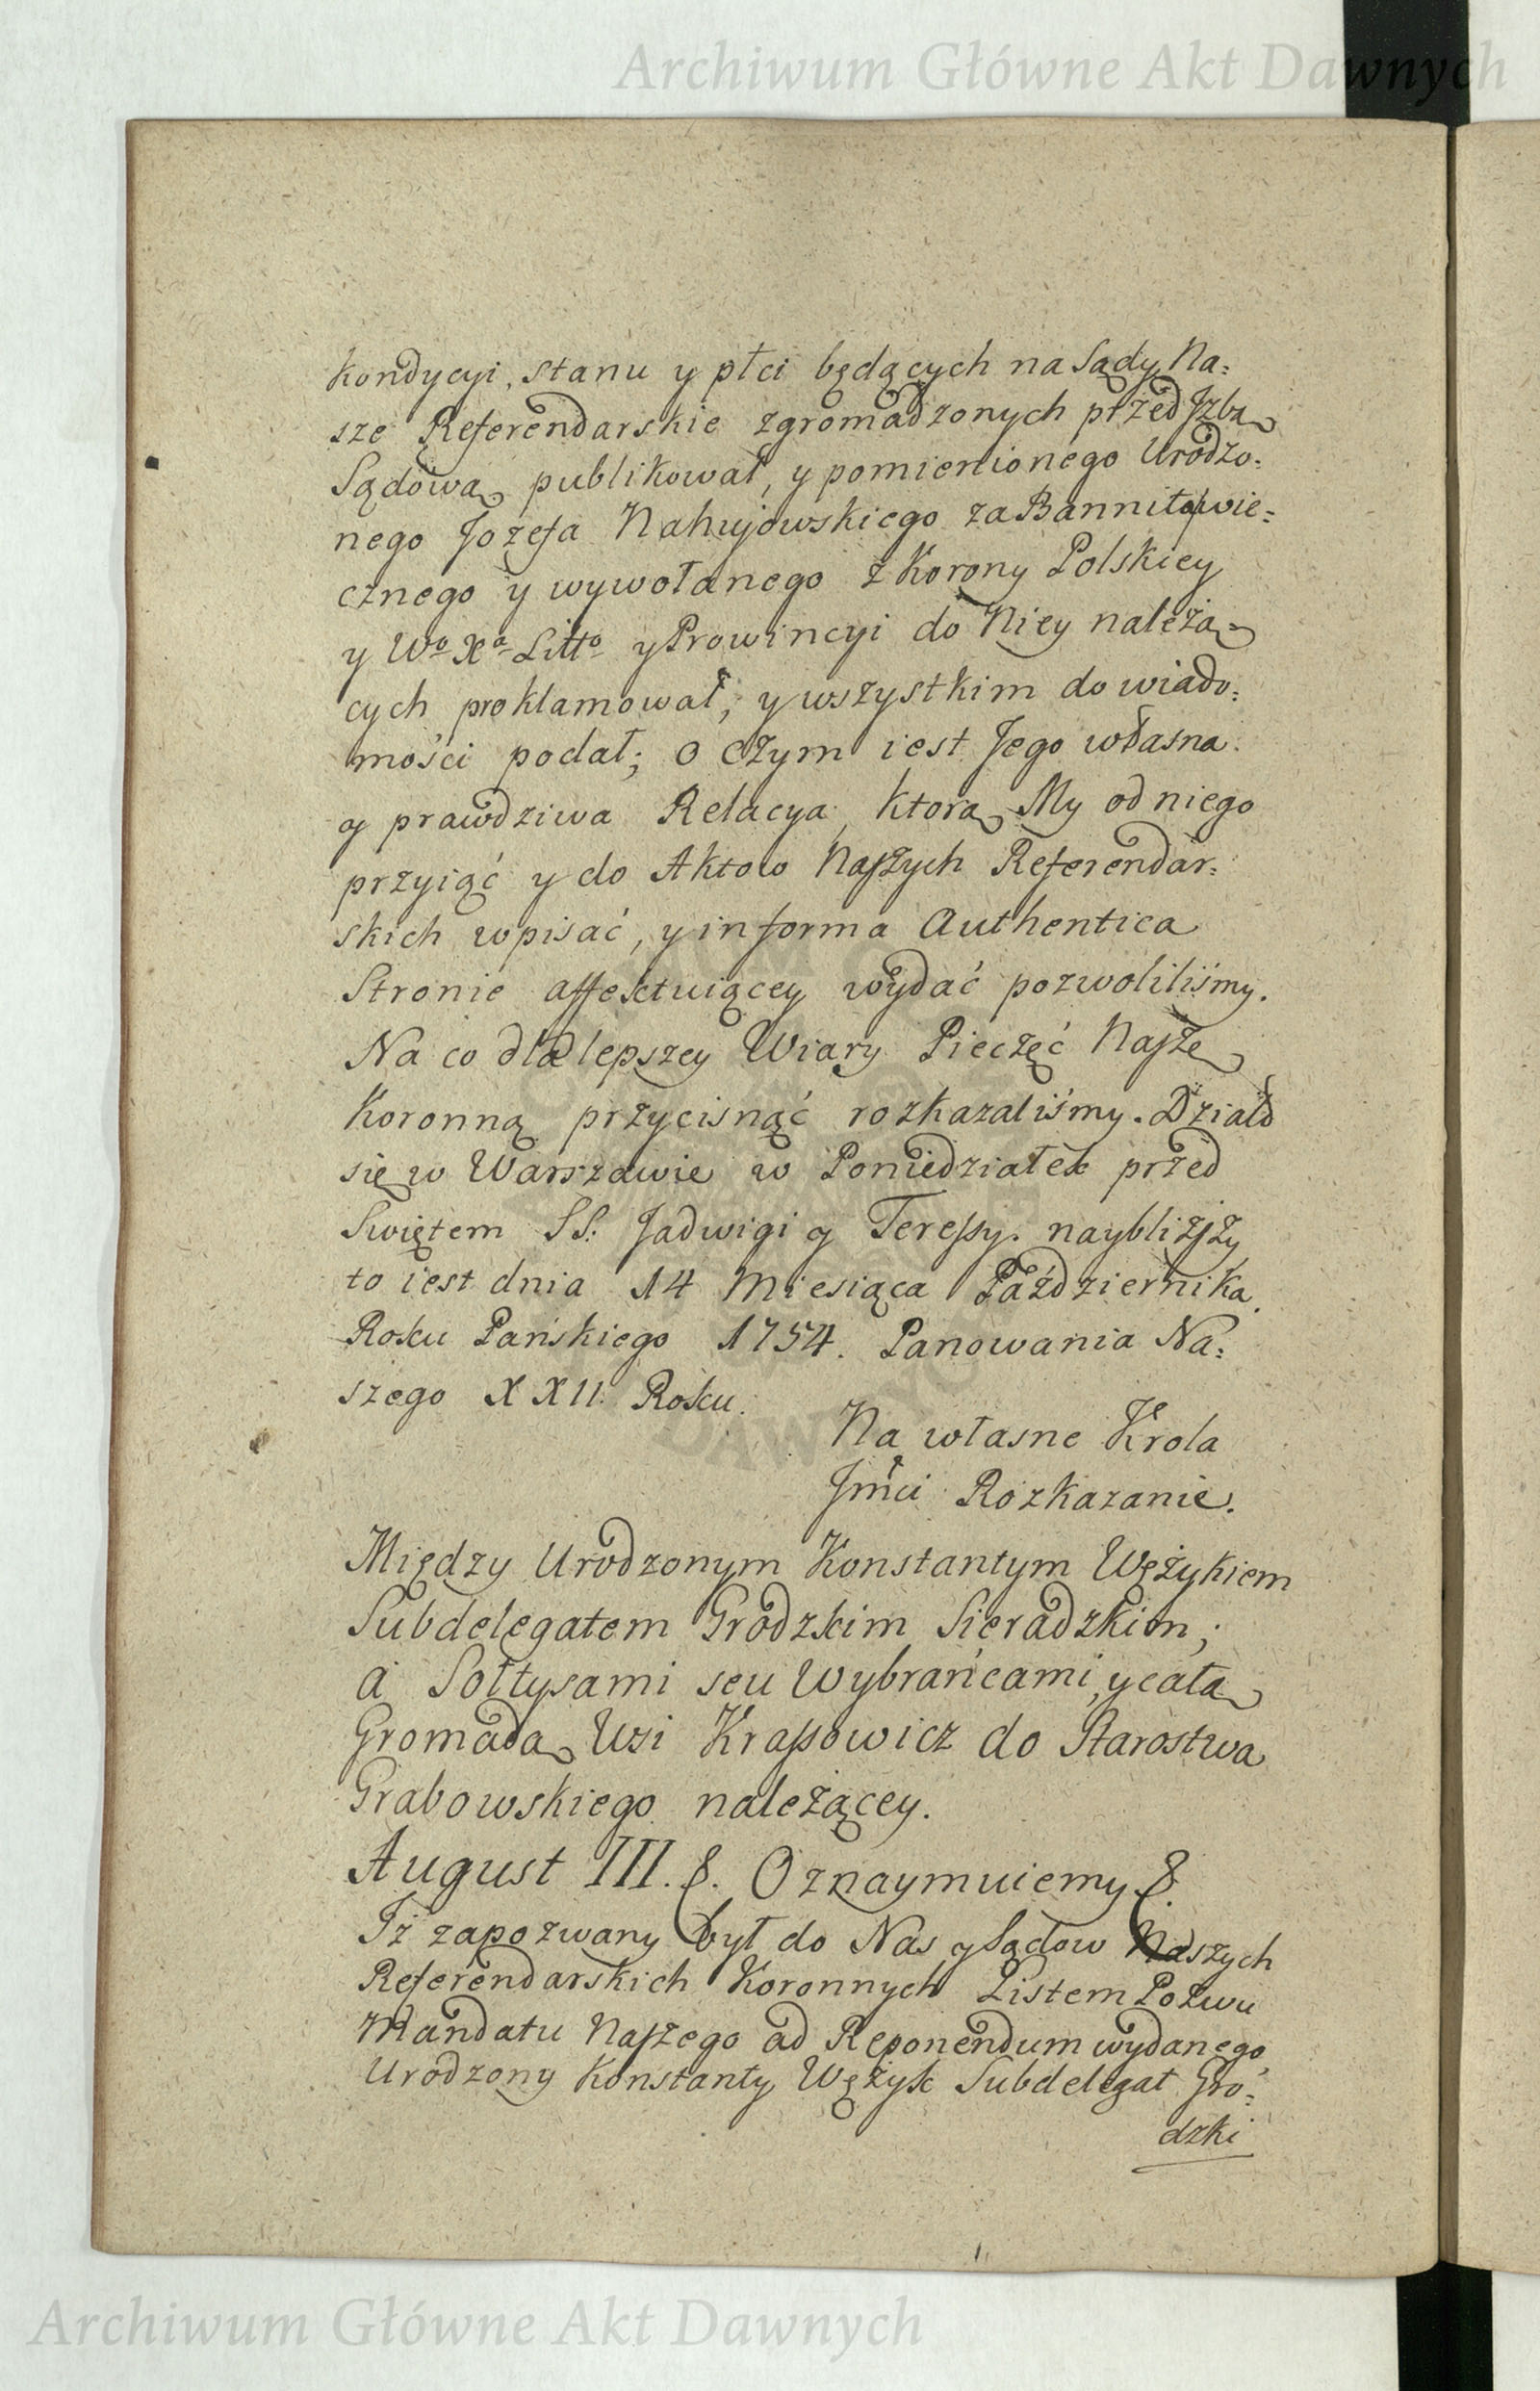 Archiwum Główne Akt Dawnych
kondycyi, stanu y płci będących na Sądy Na=
sze Referendarskie zgromadzonych przed Jzbą
Sądową publikował, y pomienionego Urodzo=
nego Jozefa Nahujowskiego za Bannitę wie=
cznego y wywołanego z Korony Polskiey
y Wo Xa Litto y Prowincyi do Niey należą=
cych proklamował, y wszystkim do wiado=
mości podał; o czym iest Jego własna
y prawdziwa Relacya, ktorą My od niego
przyiąć y do Aktow Naszych Referendar=
skich wpisać, y in forma Authentica
Stronie affektuiącey wydać pozwoliliśmy.
Na co dla lepszey Wiary Pieczęć Naszę
Koronną przycisnąć rozkazaliśmy. Działo
się w Warszawie w Poniedziałek przed
Swiętem SS. Jadwigi y Teressy. naybliższy
to iest dnia 14 Miesiąca Października
Roku Pańskiego 1754. Panowania Na=
szego XXII Roku.
Na własne Krola
Jmci Rozkazanie.
Między Urodzonym Konstantym Wężykiem
Subdelegatem Grodzkim Sieradzkim,
a Sołtysami seu Wybrańcami, y całą
Gromadą Wsi Krassowicz do Starostwa
Grabowskiego należącey.
August III. &. Oznaymuiemy &.
Jż zapozwany był do Nas y Sądow Naszych
Referendarskich Koronnych Listem Pozwu
Mandatu Naszego ad Reponendum wydanego,
Urodzony Konstanty Wężyk Subdelegat Gro=
dzki
Archiwum Główne Akt Dawnych